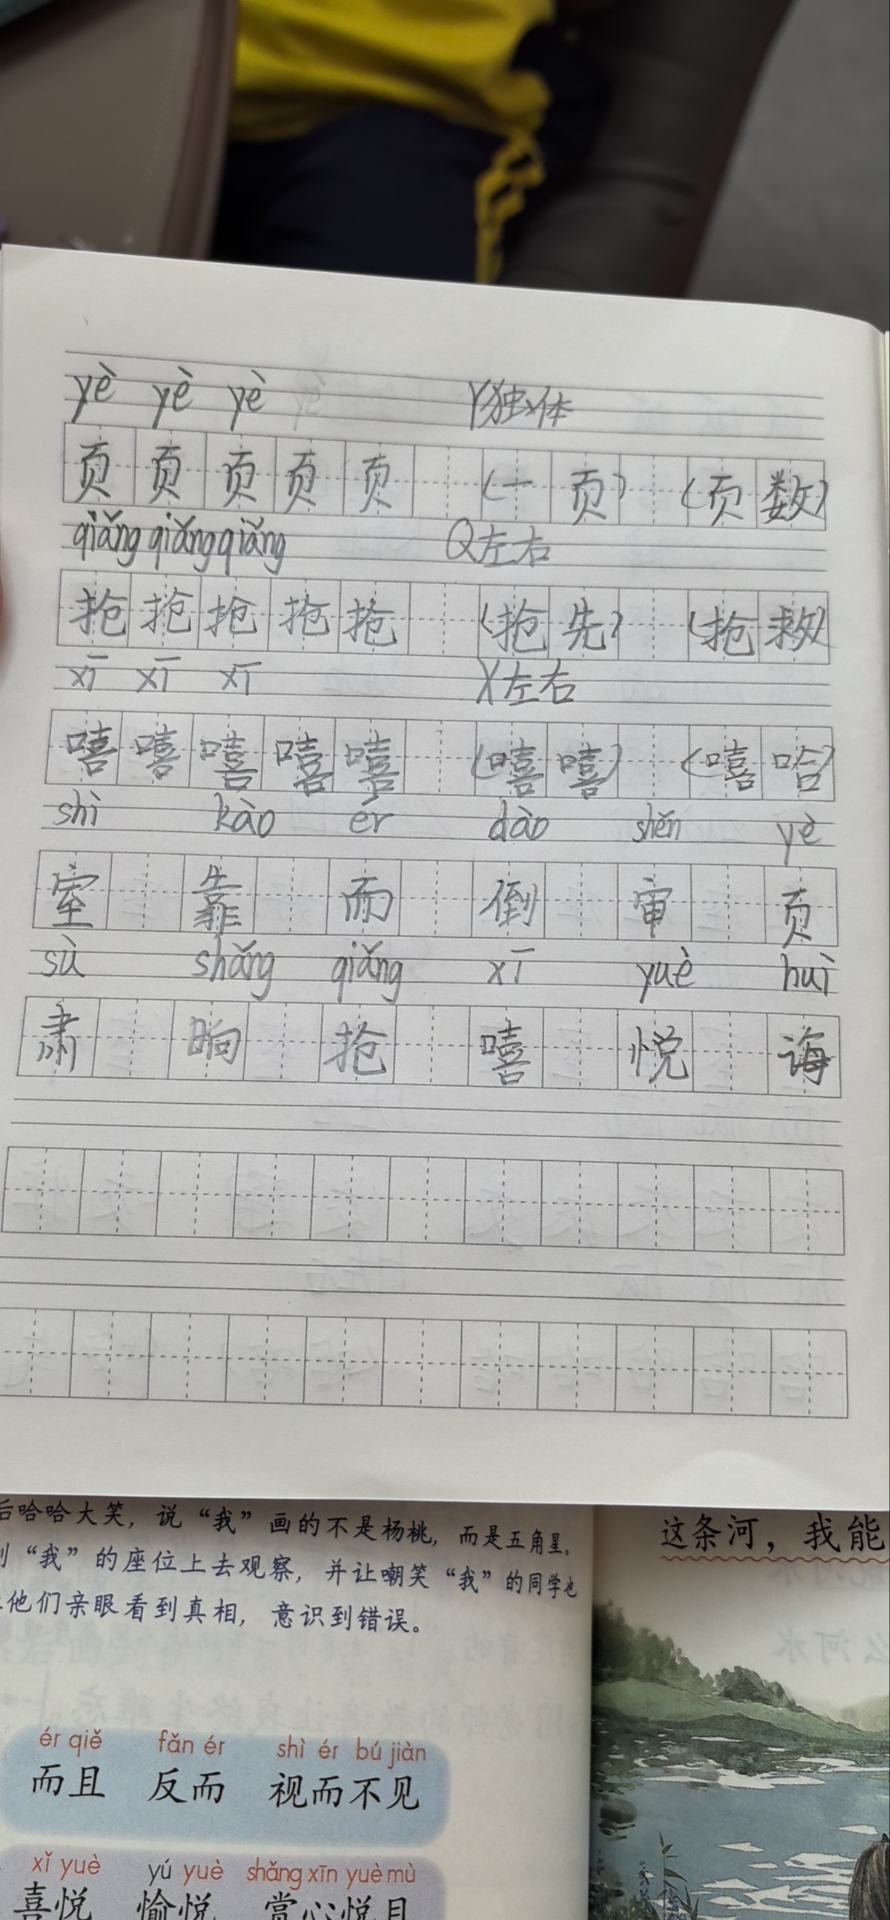 yè yè yè Y独体
页 页 页 页 页 (一 页) (页 数)
qiǎng qiǎng qiǎng Q左右
抢 抢 抢 抢 抢 (抢 先) (抢 救)
xī xī xī X左右
嘻 嘻 嘻 嘻 嘻 (嘻 嘻) (嘻 哈)
shì kào ér dào shěn yè
室 靠 而 倒 审 页
sù shǎng qiǎng xī yuè huì
肃 晌 抢 嘻 悦 诲
后哈哈大笑，说“我”画的不是杨桃，而是五角星。
“我”的座位上去观察，并让嘲笑“我”的同学也
他们亲眼看到真相，意识到错误。
ér qiě fǎn ér shì ér bú jiàn
而且 反而 视而不见
xǐ yuè yú yuè shǎng xīn yuè mù
喜悦 愉悦 赏心悦目
这条河，我能
么河水